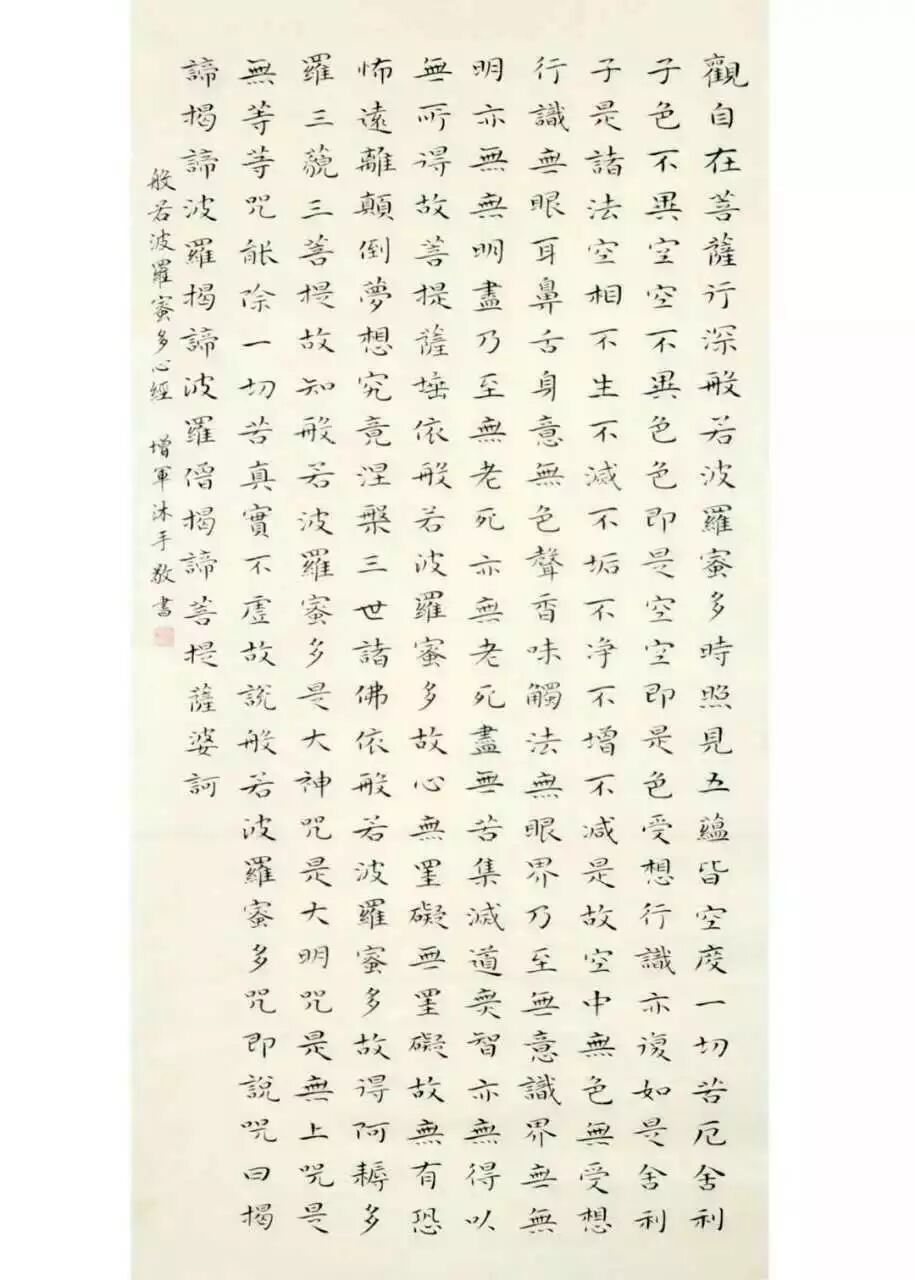 觀自在菩薩行深般若波羅蜜多時照見五蘊皆空度一切苦厄舍利
子色不異空空不異色色即是空空即是色受想行識亦復如是舍利
子是諸法空相不生不滅不垢不净不增不減是故空中無色無受想
行識無眼耳鼻舌身意無色聲香味觸法無眼界乃至無意識界無無
明亦無無明盡乃至無老死亦無老死盡無苦集滅道無智亦無得以
無所得故菩提薩埵依般若波羅蜜多故心無罣礙無罣礙故無有恐
怖遠離顛倒夢想究竟涅槃三世諸佛依般若波羅蜜多故得阿耨多
羅三藐三菩提故知般若波羅蜜多是大神咒是大明咒是無上咒是
無等等咒能除一切苦真實不虛故說般若波羅蜜多咒即說咒曰揭
諦揭諦波羅揭諦波羅僧揭諦菩提薩婆訶
般若波羅蜜多心經 增軍沐手敬書